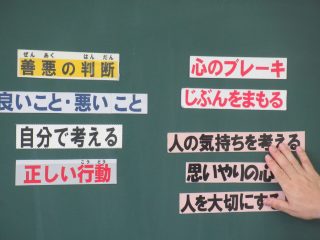 善悪の判断
ぜん あく はん だん
良いこと・悪いこと
自分で考える
正しい行動
こうどう
心のブレーキ
じぶんをまもる
人の気持ちを考える
思いやりの心
人を大切にする